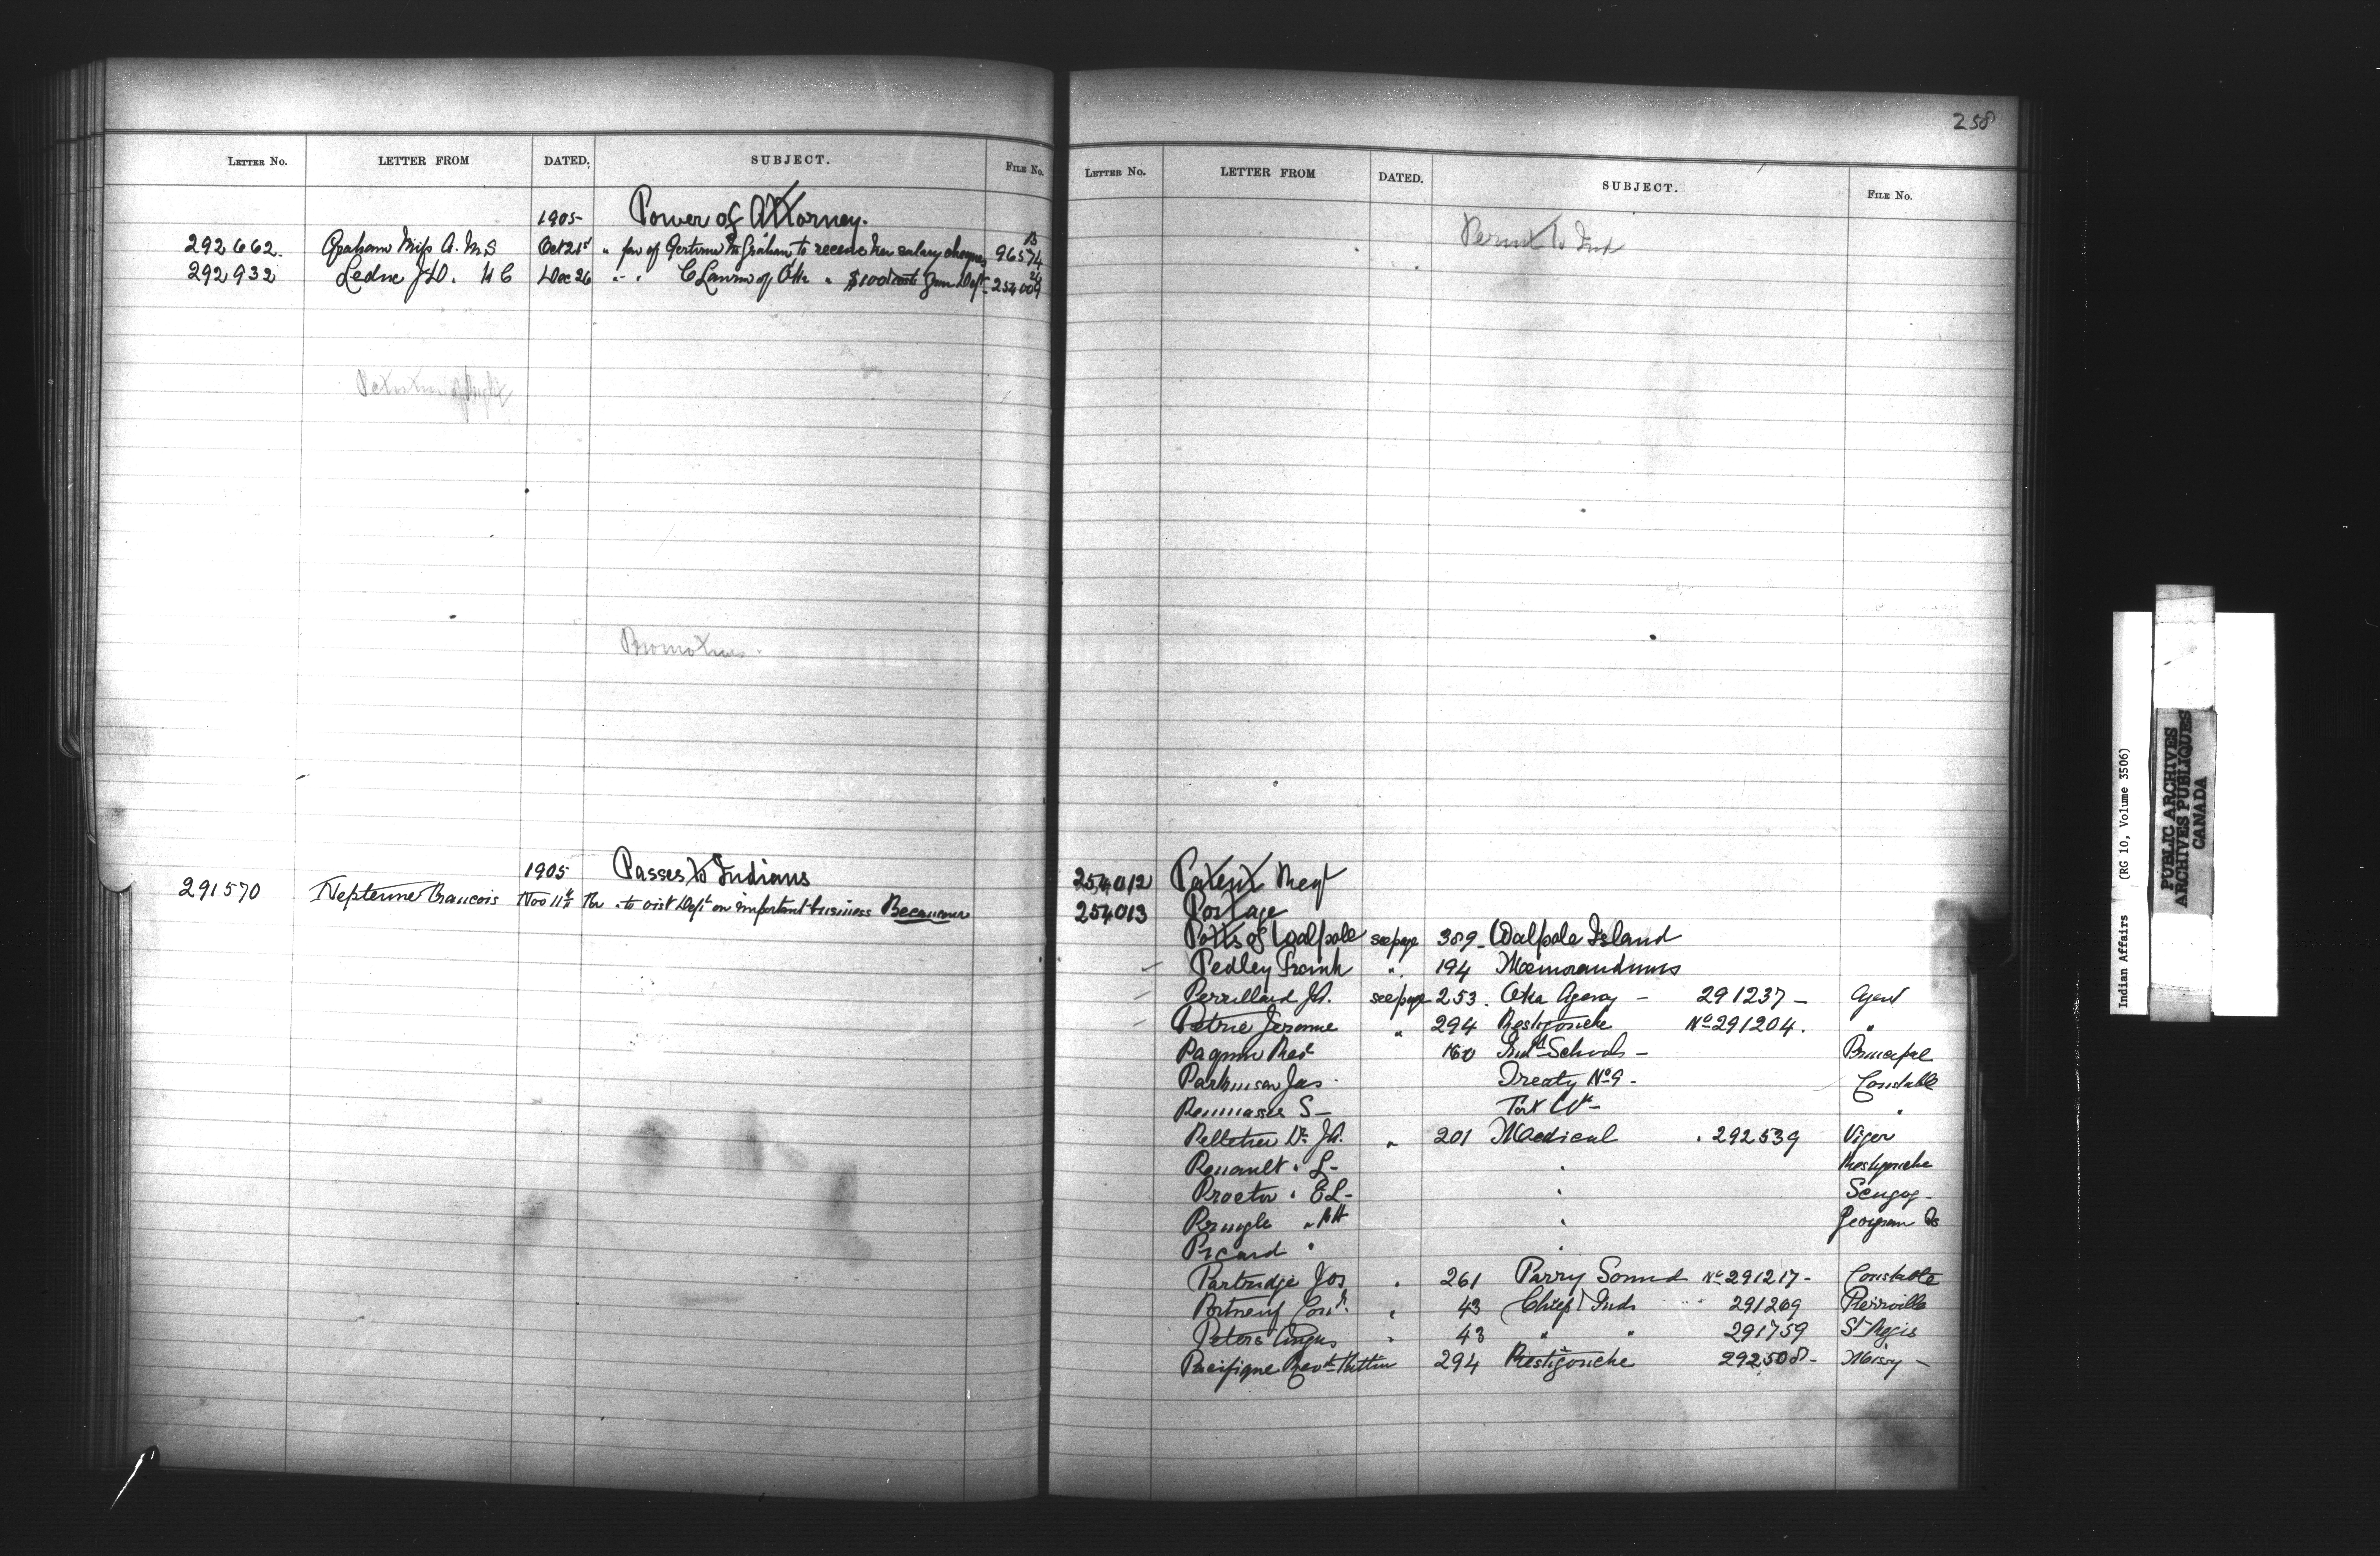 LETTER No. LETTER FROM DATED. SUBJECT. FILE No.
1905 Power of Attorney.
292662. Graham Miss A. M. S Oct 21st " fav of Gertrude M Graham to receive her salary cheques 96574
292932 Leduc J.D. N C Dec 26 " " C of Otta " $100 costs from Dept 254009
Petition of Right
Promotions.
1905 Passes to Indians
291570 Neptune Francois Nov 11th " to visit Dept on important business Becancour
258
LETTER No. LETTER FROM DATED. SUBJECT. FILE No.
Permit to Ind
254012 Patent Regt
254013 Portage
Potts of Walpole see page 389 Walpole Island
Pedley Frank " 194 Memorandums
Perrillard JA. see page 253. Oka Agency - 291237 - Agent
Petrie Jerome " 294 Restigouche No 291204. "
Paquin Revd 160 Indl Schools - Principal
Parkinson Jas. Treaty No 9 - Constable
S - Fort Wm - "
Pelletier Dr JA. " 201 Medical . 292539 Viger
" L - " Restigouche
Proctor " EL - " Scugog -
Pringle " RH " Georgian Is
Picard " "
Partridge Jos " 261 Parry Sound No 291217 - Constable
Portneuf " 43 Chief Inds 291269 Pierreville
Peters Angus " 43 " " 291759 St Regis
Pacifique Revd 294 Restigouche 292508 - Missy -
Indian Affairs (RG 10, Volume 3506)
PUBLIC ARCHIVES
ARCHIVES PUBLIQUES
CANADA